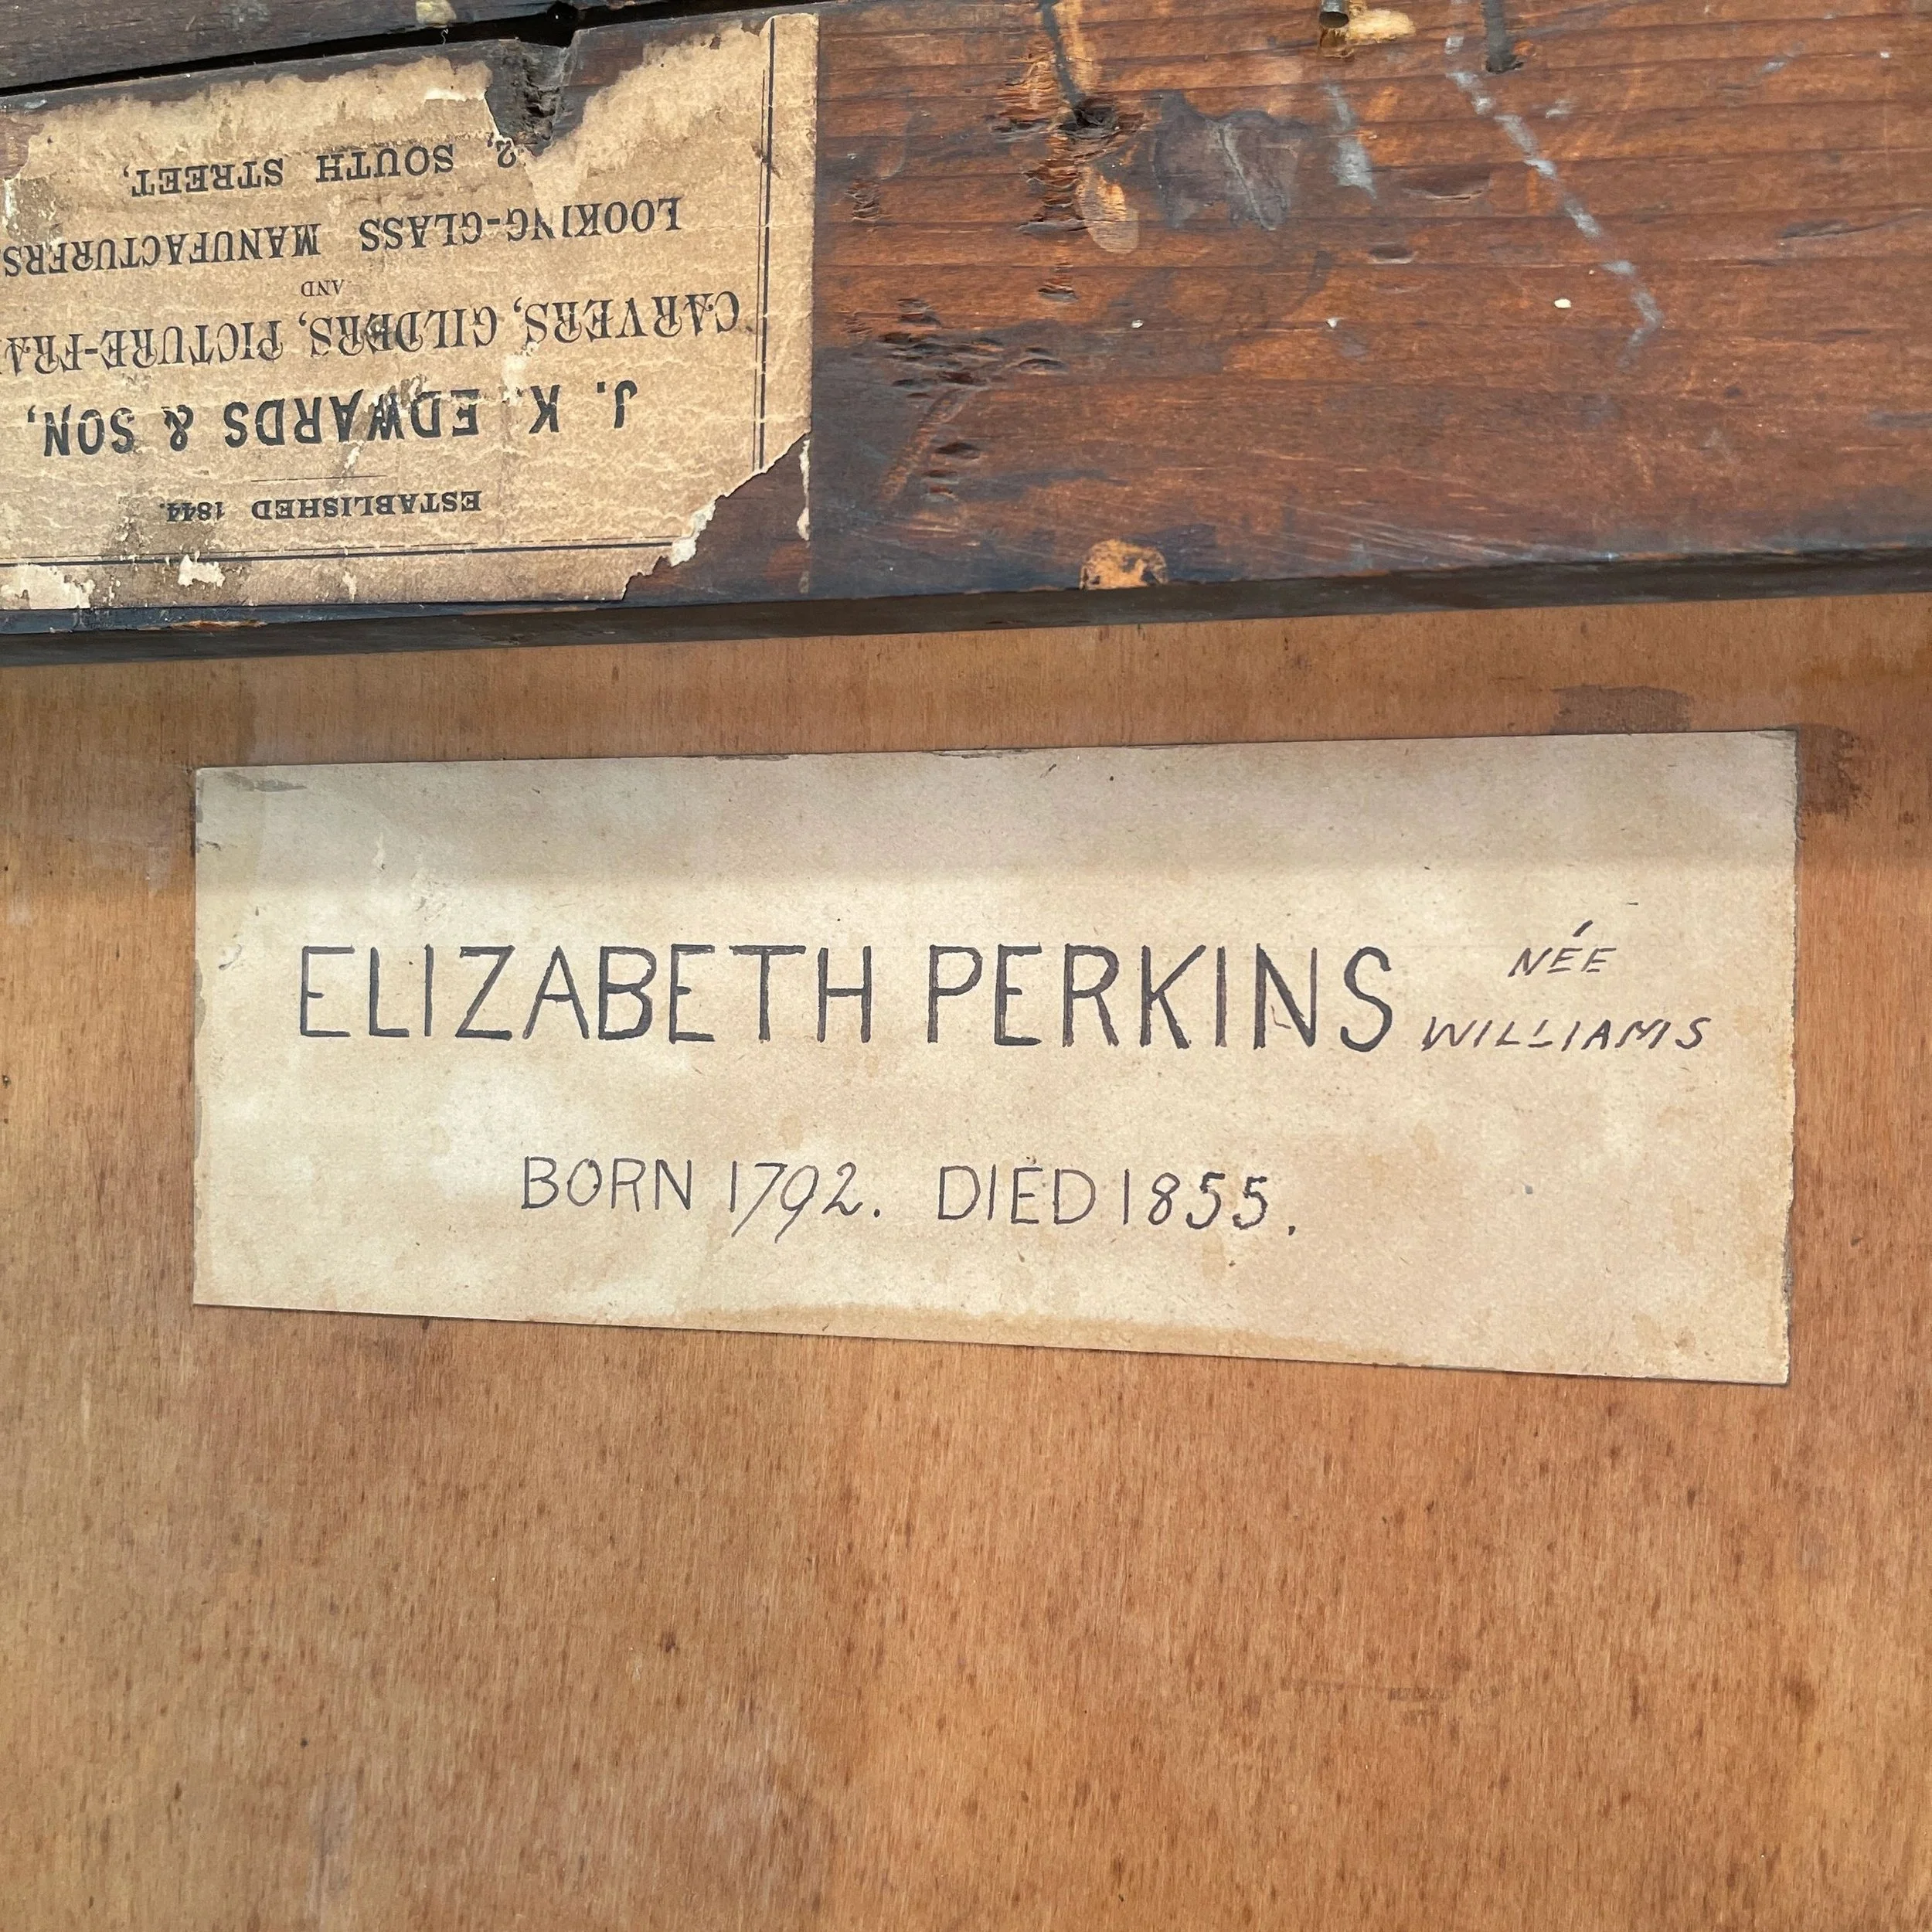 ESTABLISHED 1844.
J. K. EDWARDS & SON,
CARVERS, GILDERS, PICTURE-FRA
AND
LOOKING-GLASS MANUFACTURERS
2, SOUTH STREET,
ELIZABETH PERKINS NÉE
WILLIAMS
BORN 1792. DIED 1855.